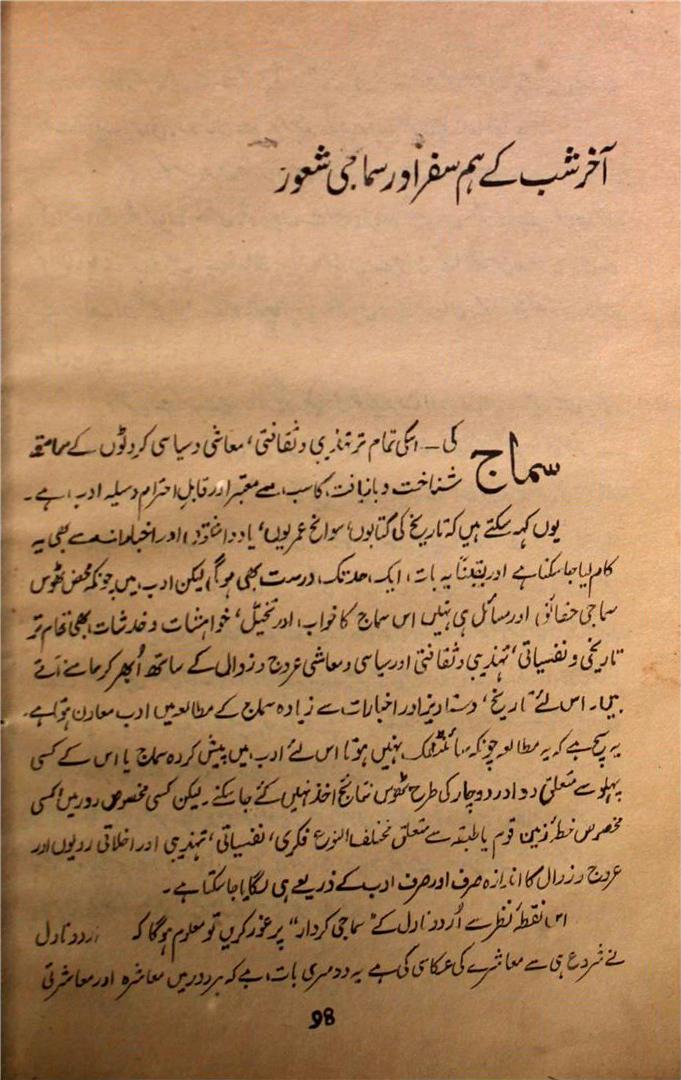 آخر شب کے ہم سفر اور سماجی شعور
سماج کی — اسکی تمام تر تہذیبی و ثقافتی، معاشی و سیاسی کروٹوں کے ساتھ
شناخت و بازیافت کا سب سے معتبر اور قابلِ احترام وسیلہ ادب ہے۔
یوں کہہ سکتے ہیں کہ تاریخ کی کتابوں، سوانح عمریوں، یادداشتوں اور اخبارات سے بھی یہ
کام لیا جاسکتا ہے اور یقیناً یہ بات، ایک حد تک درست بھی ہوگی لیکن ادب میں چونکہ محض ٹھوس
سماجی حقائق اور مسائل ہی نہیں اس سماج کا خواب، اور تخیل، خواہشات و خدشات بھی تمام تر
تاریخی و نفسیاتی، تہذیبی و ثقافتی اور سیاسی و معاشی عروج و زوال کے ساتھ اُبھر کر سامنے آتے
ہیں۔ اس لئے تاریخ، دستاویز اور اخبارات سے زیادہ سماج کے مطالعہ میں ادب معاون ہوتا ہے۔
یہ سچ ہے کہ یہ مطالعہ چونکہ سائنٹفک نہیں ہوتا اس لئے ادب میں پیش کردہ سماج یا اس کے کسی
پہلو سے متعلق دو اور دو چار کی طرح ٹھوس نتائج اخذ نہیں کئے جاسکتے۔ لیکن کسی مخصوص دور میں کسی
مخصوص خطۂ زمین قوم یا طبقہ سے متعلق مختلف النوع فکری، نفسیاتی، تہذیبی اور اخلاقی رویوں اور
عروج و زوال کا اندازہ صرف اور صرف ادب کے ذریعے ہی لگایا جاسکتا ہے۔
اس نقطۂ نظر سے اُردو ناول کے "سماجی کردار" پر غور کریں تو معلوم ہوگا کہ اردو ناول
نے شروع ہی سے معاشرے کی عکاسی کی ہے یہ دوسری بات ہے کہ ہر دور میں معاشرہ اور معاشرتی
98